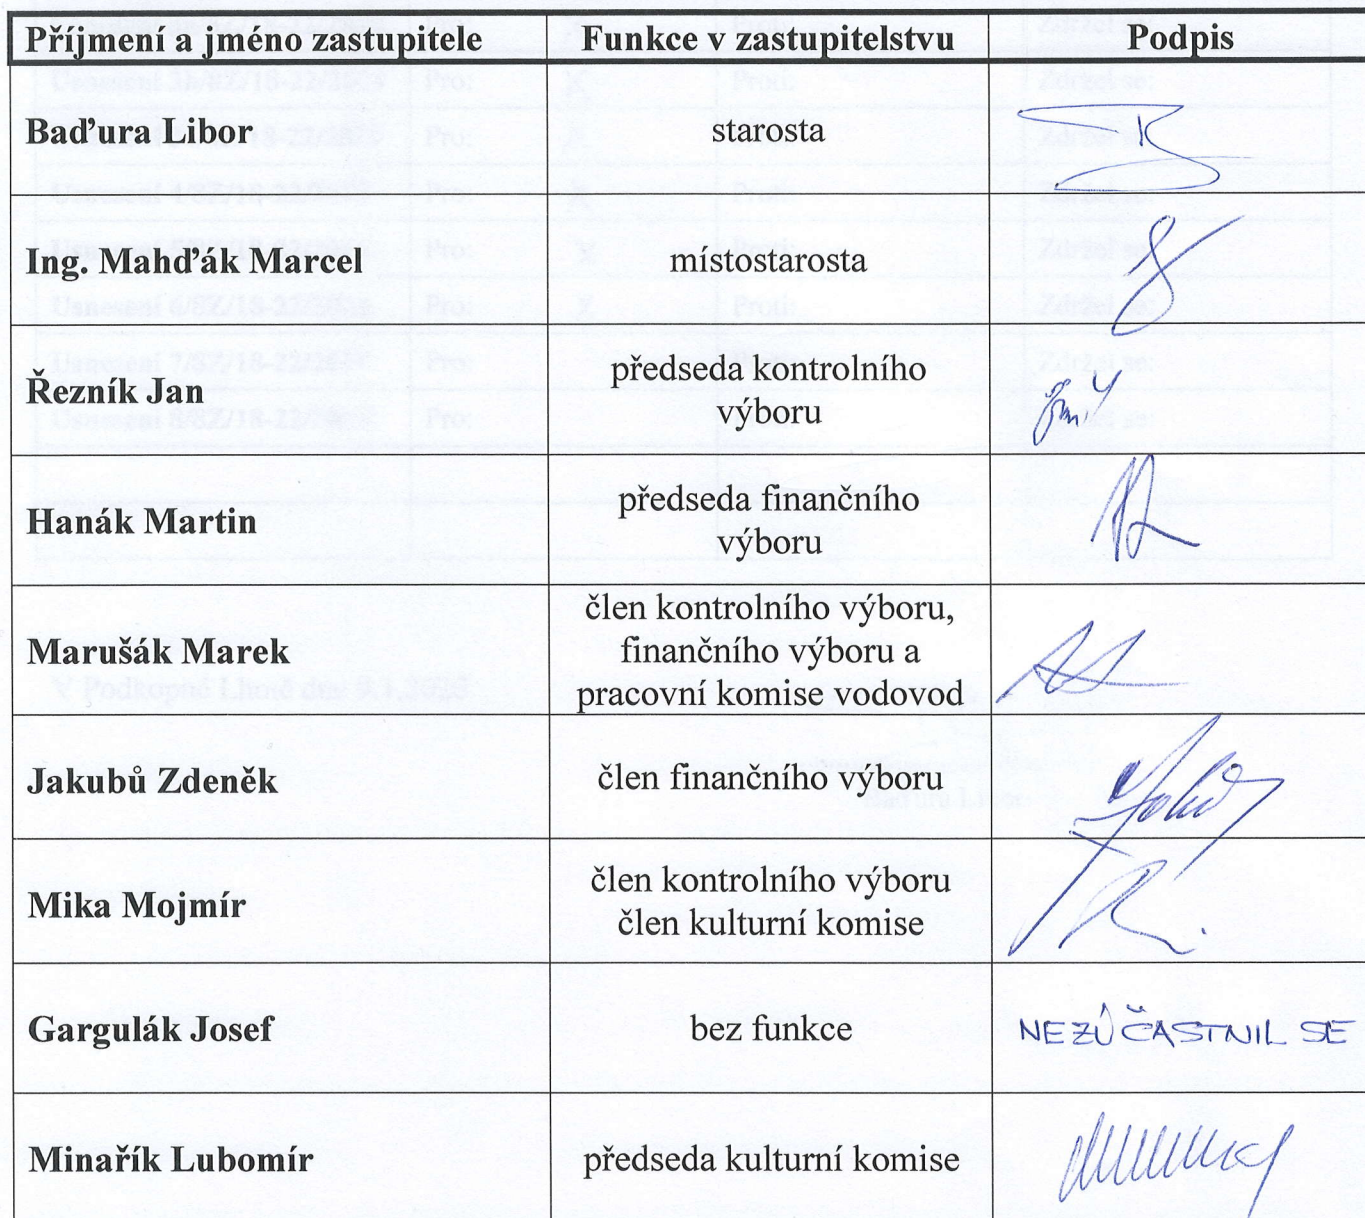 Příjmení a jméno zastupitele Funkce v zastupitelstvu Podpis
Baďura Libor starosta
Ing. Mahďák Marcel místostarosta
Řezník Jan předseda kontrolního
výboru
Hanák Martin předseda finančního
výboru
Marušák Marek člen kontrolního výboru,
finančního výboru a
pracovní komise vodovod
Jakubů Zdeněk člen finančního výboru
Mika Mojmír člen kontrolního výboru
člen kulturní komise
Gargulák Josef bez funkce NEZÚČASTNIL SE
Minařík Lubomír předseda kulturní komise